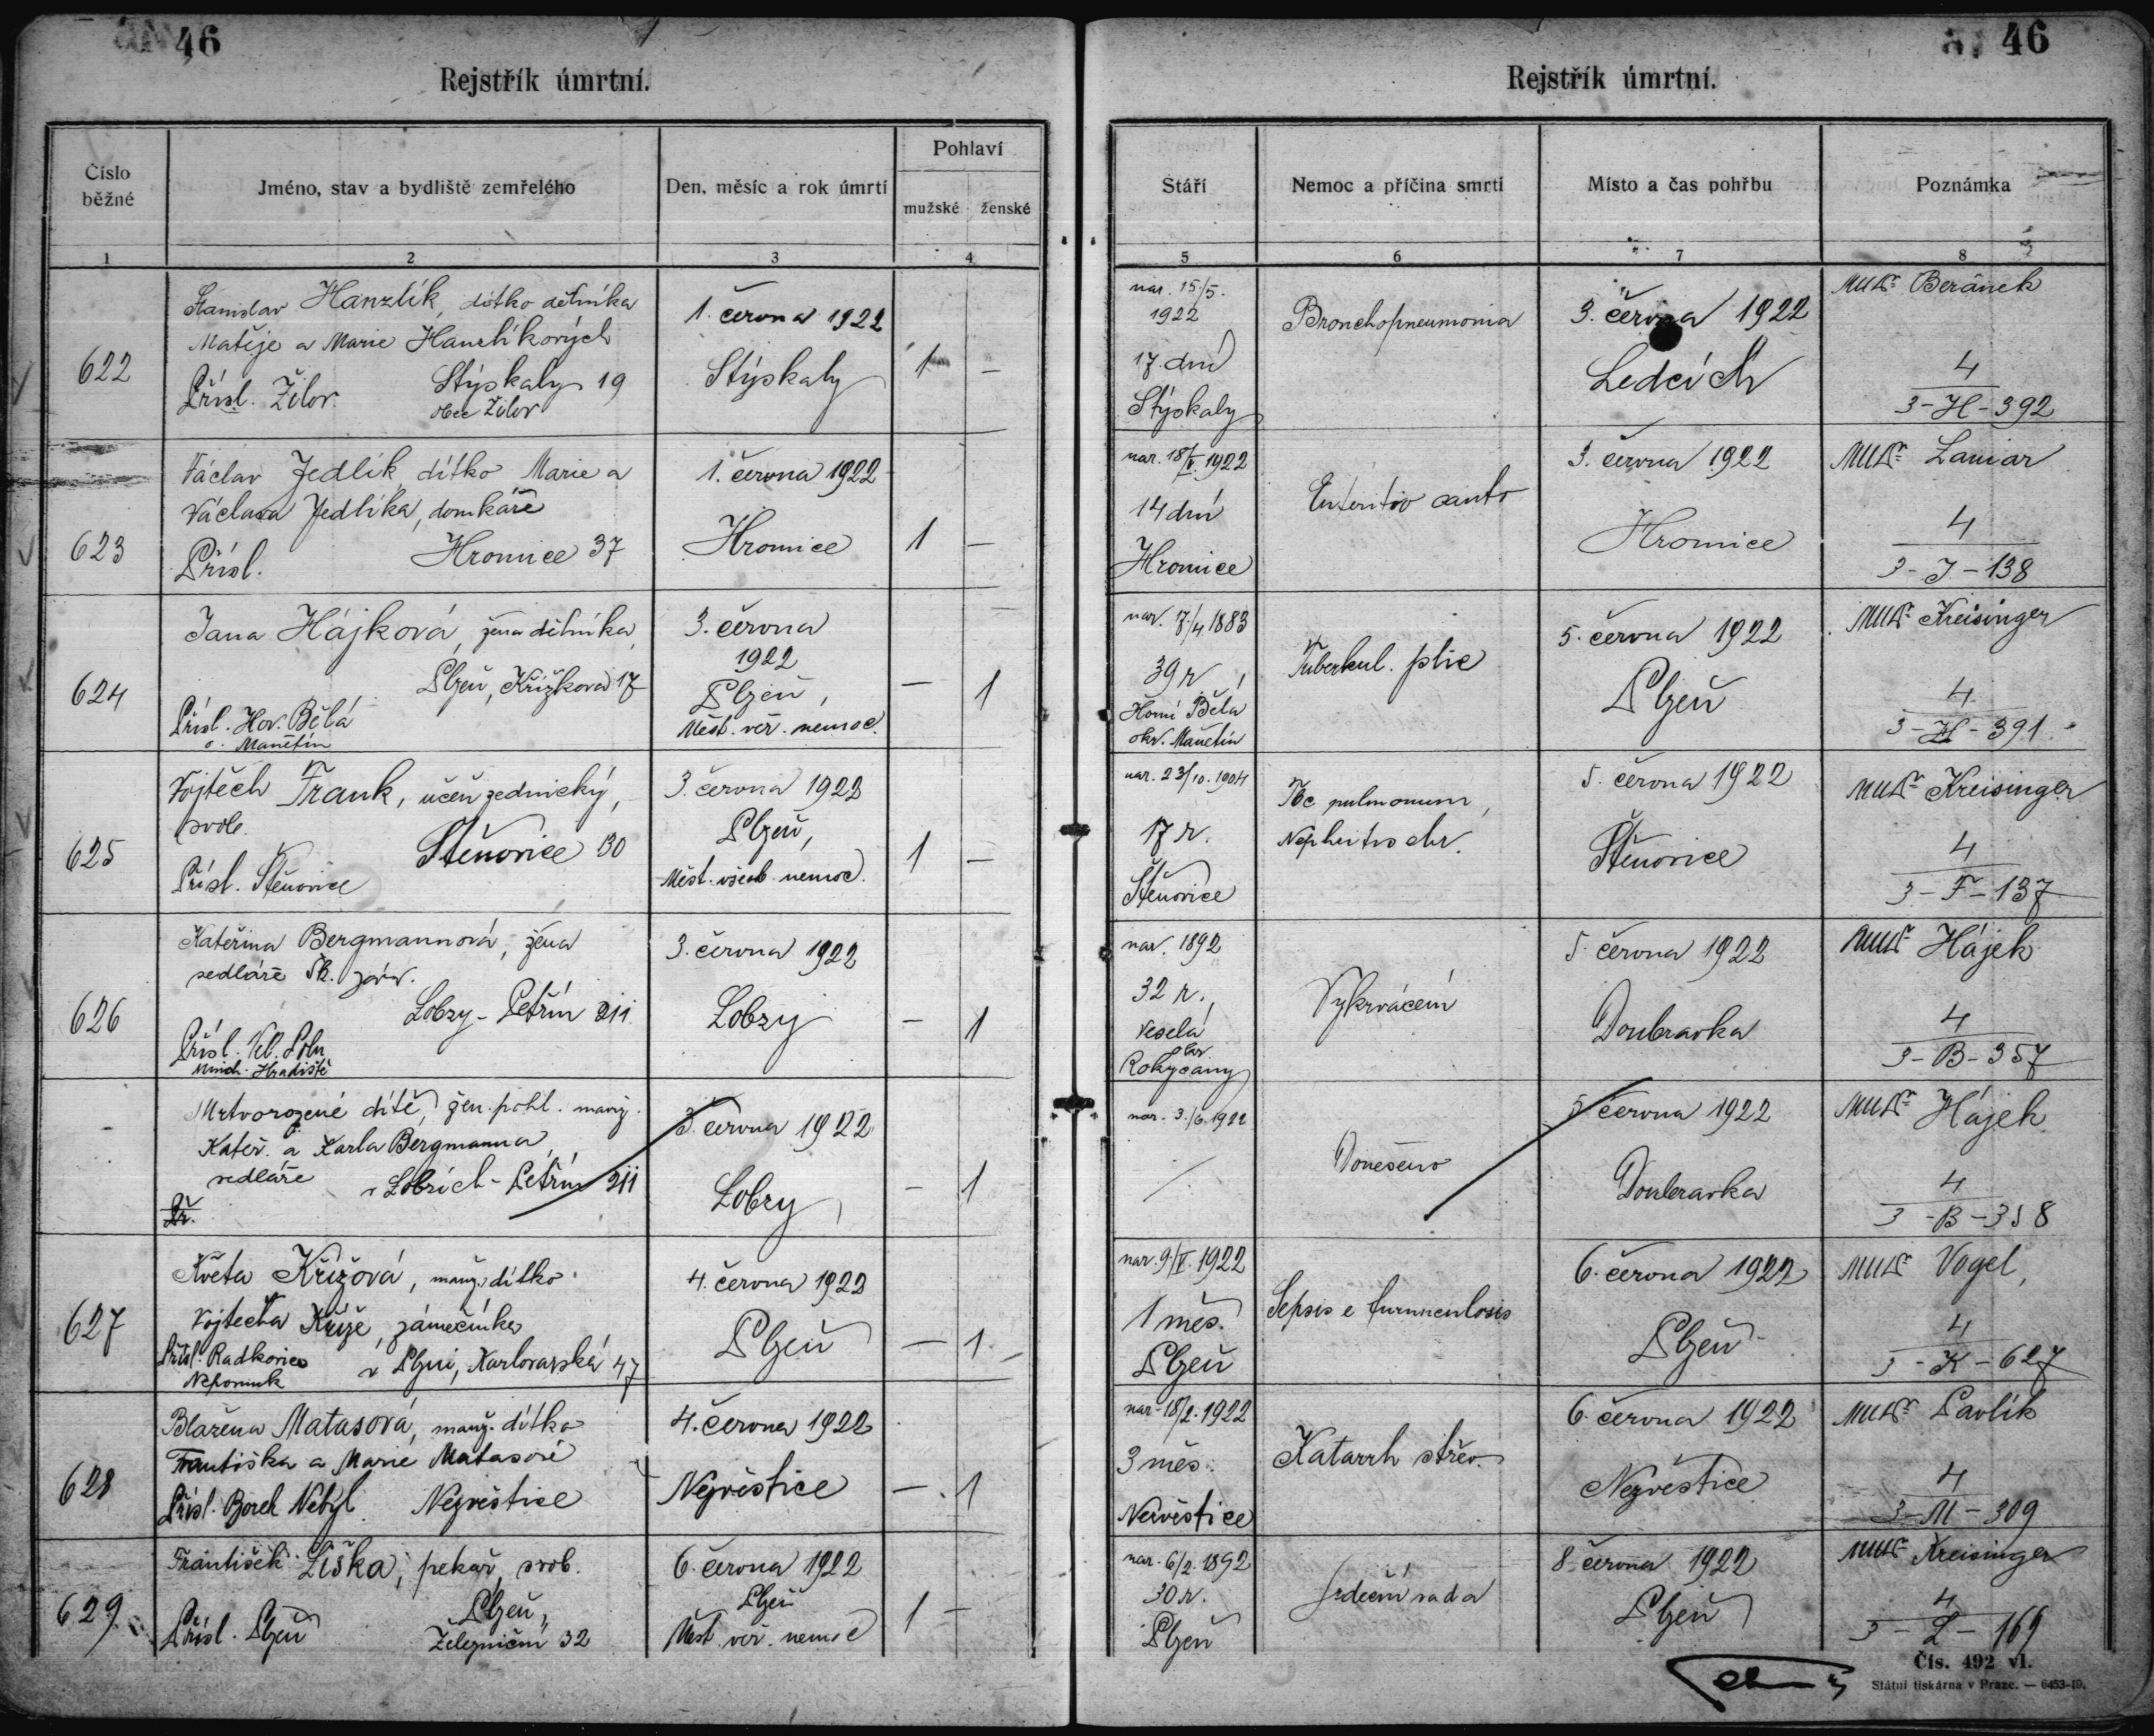 46
Rejstřík úmrtní.
Číslo běžné
Jméno, stav a bydliště zemřelého
Den, měsíc a rok úmrtí
Pohlaví
mužské
ženské
1
2
3
4
622
Stanislav Hanzlík, dítko dělníka
Matěje a Marie Hanzlíkových
Přísl. Žilov. Stýskaly 19
obec Žilov
1. června 1922
Stýskaly
1 –
623
Václav Jedlík, dítko Marie a
Václava Jedlíka, domkáře
Hromice 37
Přísl.
1. června 1922
Hromice
1 –
624
Jana Hájková, žena dělníka,
Plzeň, Křížkova 17
Přísl. Hor. Bělá
o. Manětín
3. června
1922
Plzeň,
Měst. veř. nemoc.
– 1
625
Vojtěch Frank, učeň zednický,
svob.
Štěnovice 30
Přísl. Štěnovice
3. června 1922
Plzeň,
Měst. všeob. nemoc.
1 –
626
Kateřina Bergmannová, žena
sedláře Šk. záv.
Lobzy - Petřín 211
Přísl.
Mnich. Hradiště
3. června 1922
Lobzy
– 1
Mrtvorozené dítě, žen. pohl. manž.
Kateř. a Karla Bergmanna,
sedláře v Lobzích - Petřín 211
Př.
3. června 1922
Lobzy
– 1
627
Květa Křížová, manž. dítko
Vojtěcha Kříže, zámečníka
Přísl. Radkovice v Plzni, Karlovarská 47
Nepomuk
4. června 1922
Plzeň
– 1
628
Blažena Matasová, manž. dítko
Františka a Marie Matasové
Přísl. Nezvěstice
4. června 1922
Nezvěstice
– 1
629
František Liška, pekař, svob.
Plzeň,
Přísl. Plzeň Železniční 32
6. června 1922
Plzeň
Měst. veř. nemoc
1 –
46
Rejstřík úmrtní.
Stáří
Nemoc a příčina smrti
Místo a čas pohřbu
Poznámka
5
6
7
8
nar. 15./5.
1922
17 dní
Stýskaly
Bronchopneumonia
3. června 1922
Ledcích
MUDr Beránek
4
3-H-392
nar. 18/V. 1922
14 dní
Hromice
3. června 1922
Hromice
MUDr
4
3-J-138
nar. 7/4 1883
39 r.,
Horní Bělá
okr. Manětín
Tuberkul. plic
5. června 1922
Plzeň
MUDr Kreisinger
4
3-H-391
nar. 23/10. 1904
17 r.
Štěnovice
Tbc pulmonum,
chr.
5. června 1922
Štěnovice
MUDr Kreisinger
4
3-F-137
nar. 1892
32 r.,
Veselá
okr.
Rokycany
Vykrvácení
5. června 1922
Doubravka
MUDr Hájek
4
3-B-357
nar. 3./6. 1922
Doneseno
5. června 1922
Doubravka
MUDr Hájek
4
3-B-358
nar. 9/V. 1922
1 měs.
Plzeň
Sepsis e furunculosis
6. června 1922
Plzeň
MUDr Vogel,
4
3-K-627
nar. 18/2. 1922
3 měs.
Nezvěstice
Katarrh střev.
6. června 1922
Nezvěstice
MUDr Pavlík
4
3-M-309
nar. 6/2. 1892
30 r.
Plzeň
Srdeční vada
8. června 1922
Plzeň
MUDr Kreisinger
4
3-L-169
Čís. 492 vl.
Státní tiskárna v Praze. — 6453-19.